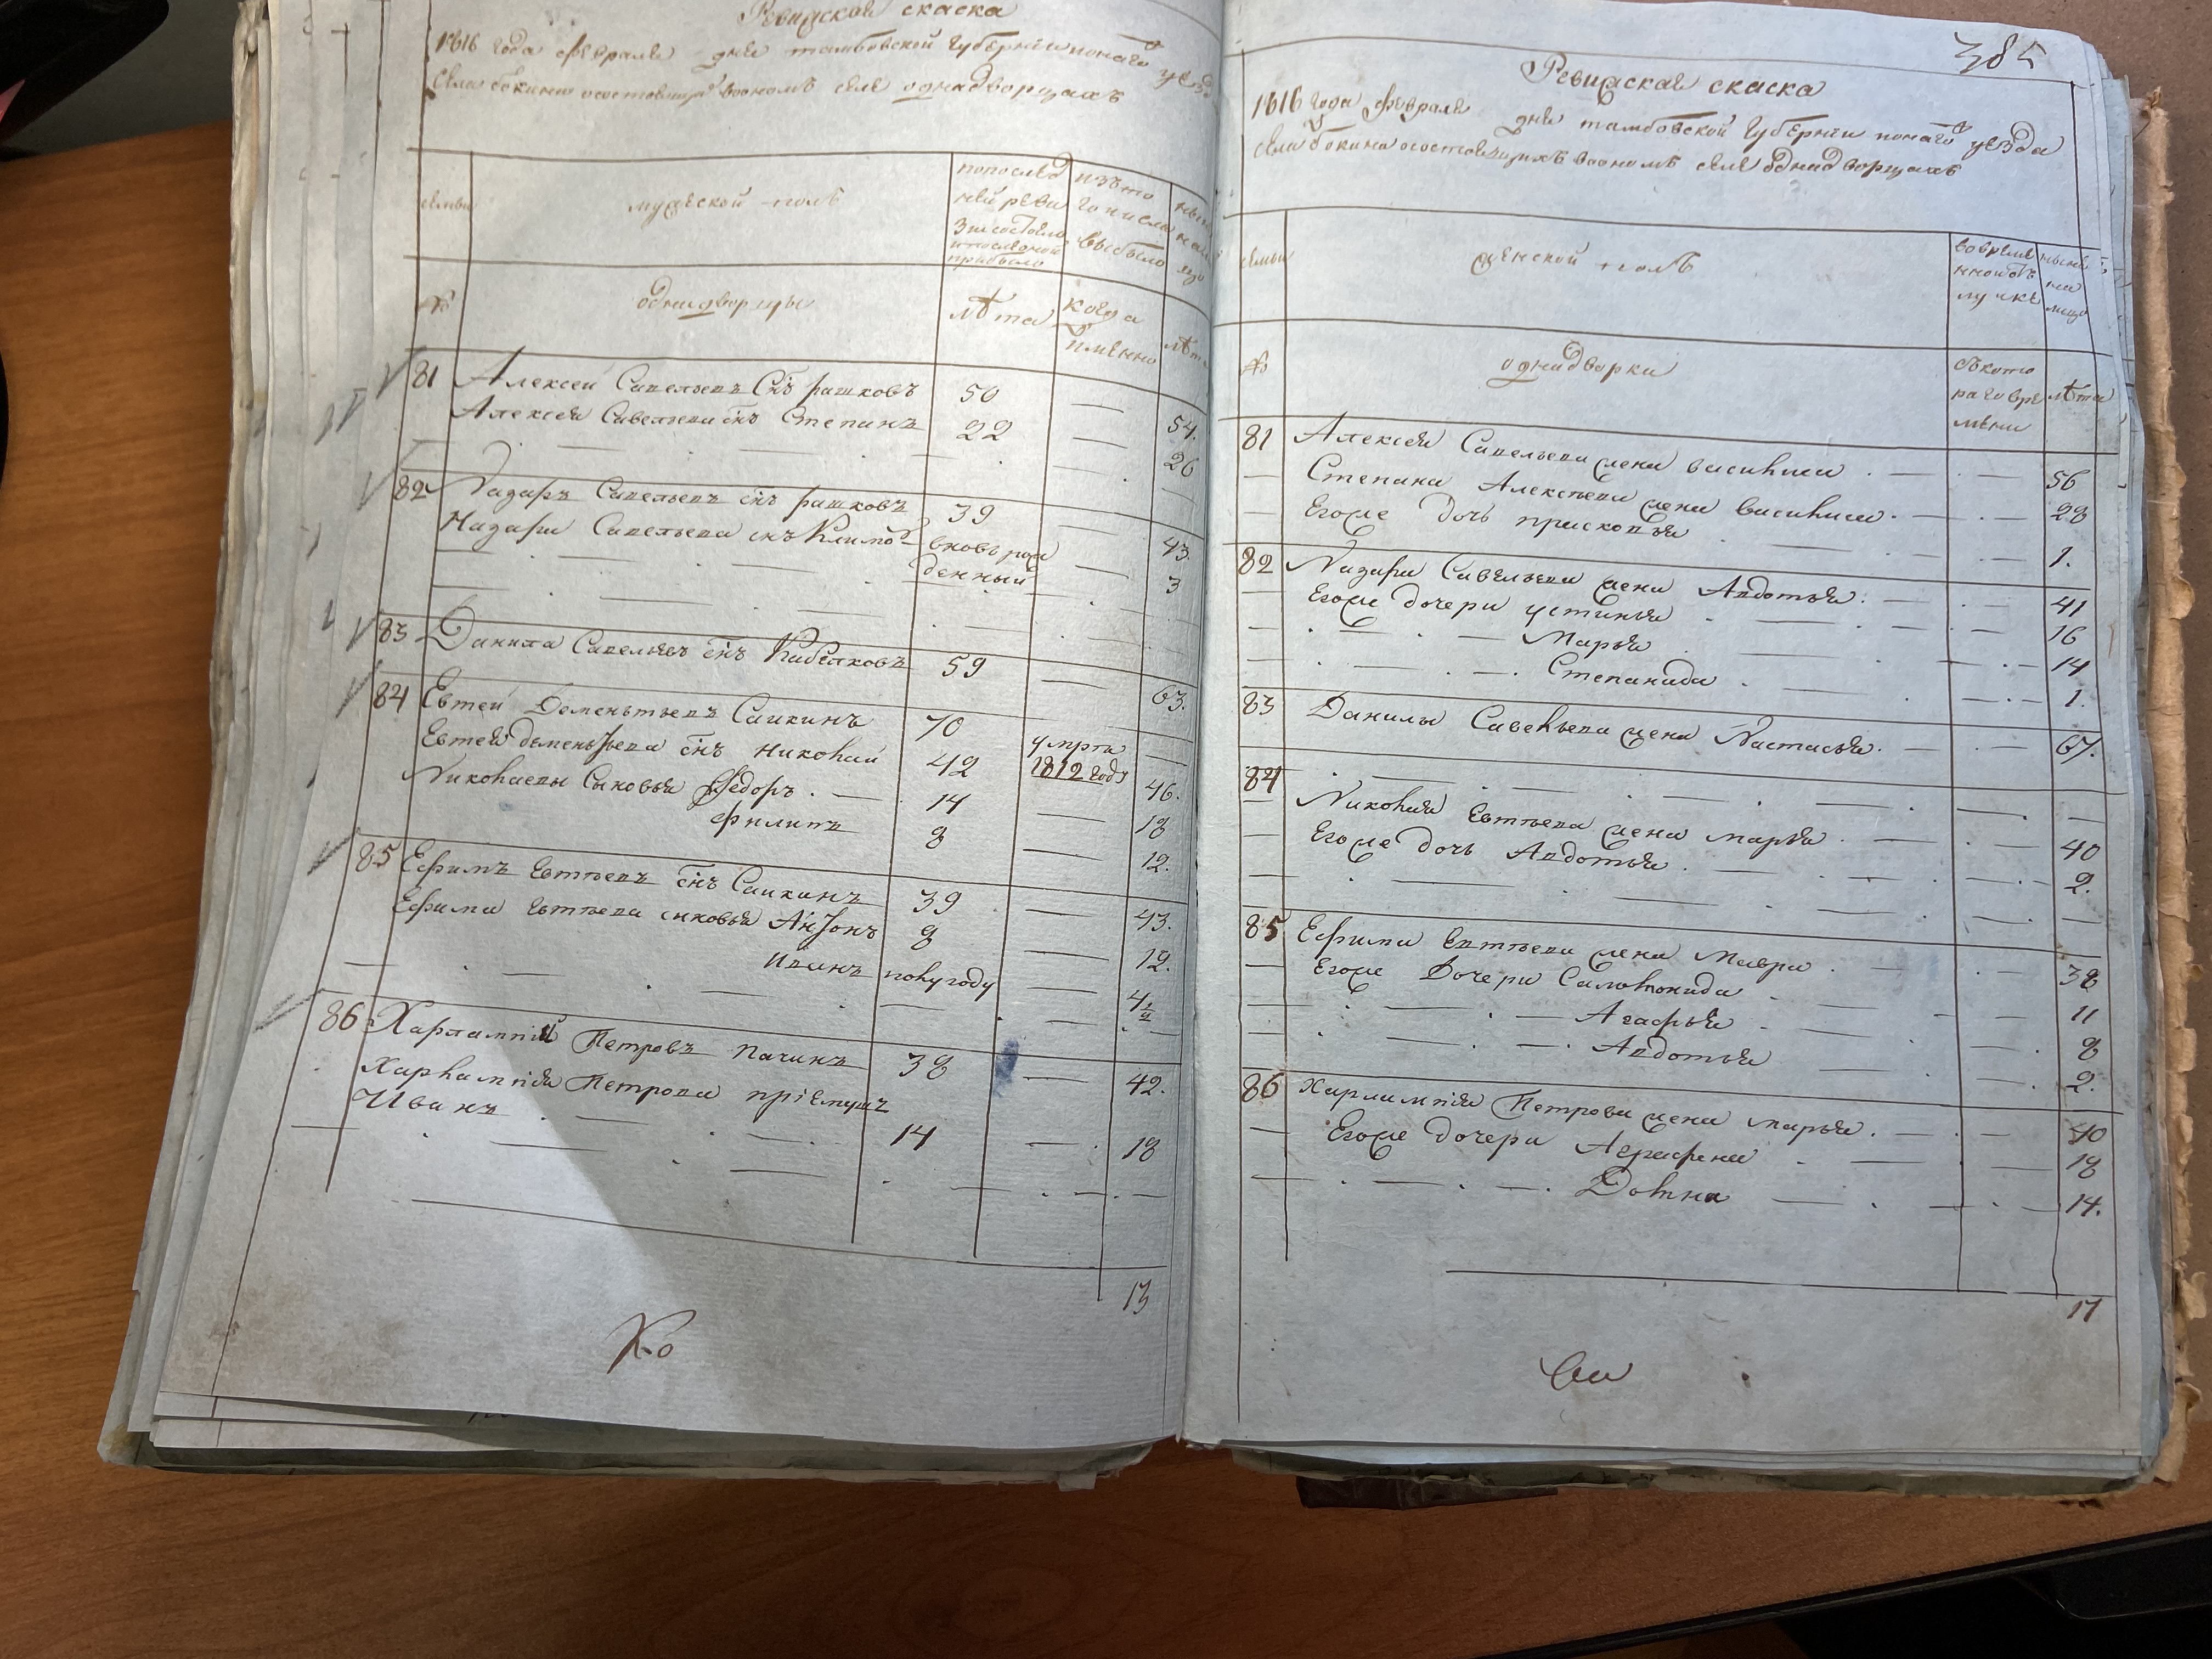 Ревиская скаска
1816 года февраля дня тамбовской губернии
села бокина осостоящихъ воономъ селе однадворцахъ
семьи
мужеской полъ
попослед
ней реви
зии состояло
ипоследной
прибыло
изъ то
го числа
выбыло
№
однадворцы
лѣта
когда
именно
лѣта
81 Алексей Савельевъ снъ рашковъ 50 — 54.
Алексея Савельева снъ Степанъ 22 — 26
82 Назаръ Савельевъ снъ рашковъ 39 — 43.
Назара Савельева снъ Климъ вновь рож
денный — 3
83 Данила Савельевъ снъ Кабелковъ 59 — 63.
84 Евтей Деменьтьевъ Саикинъ 70 умре
1812 году
Евтея деменьтьева снъ Николай 42 — 46.
Николаевы Сыновья Федоръ 14 — 18
Филипъ 8 — 12.
85 Ефимъ Евтѣевъ снъ Саикинъ 39 — 43.
Ефима Евтѣева снковья Антонъ 8 — 12.
Иванъ полугоду — 4½
86 Харлампий Петровъ Пачинъ 38 — 42.
Харлампия Петрова приемушъ
Иванъ 14 — 18
13
Ко
385
Ревиская скаска
1816 года февраля дня тамбовской губернии уезда
села бокина осостоящихъ воономъ селе однадворцахъ
семьи
женской полъ
вовреме
нной отъ
лучке
ныне
на
лицо
№
однадворки
съкото
раго вре
мени
лѣта
81 Алексея Савельева жена василиса 56
Степана Алексѣева жена василиса 28
Егоже дочь прискофья 1.
82 Назара Савельева жена Авдотья 41
Егоже дочери устинья 16
Марья 14
Степанида 1.
83 Данилы Савельева жена Настасья 67.
84
Николая Евтѣева жена марья 40
Егоже дочь Авдотья 2.
85 Ефима Евтѣева жена Мавра 38
Егоже Дочери Саломонида 11
Агафья 8
Авдотья 2.
86 Харлампия Петрова жена марья 40
Егоже дочери Аграфена 18
Домна 14.
17